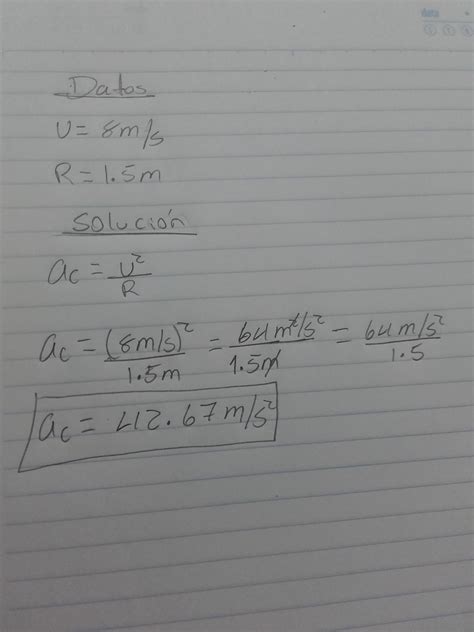 Data
Datos
v = 8m/s
R = 1.5m
Solución
ac = v²/R
ac = (8m/s)²/1.5m = 64m²/s²/1.5m = 64m/s²/1.5
ac = 412.67 m/s²